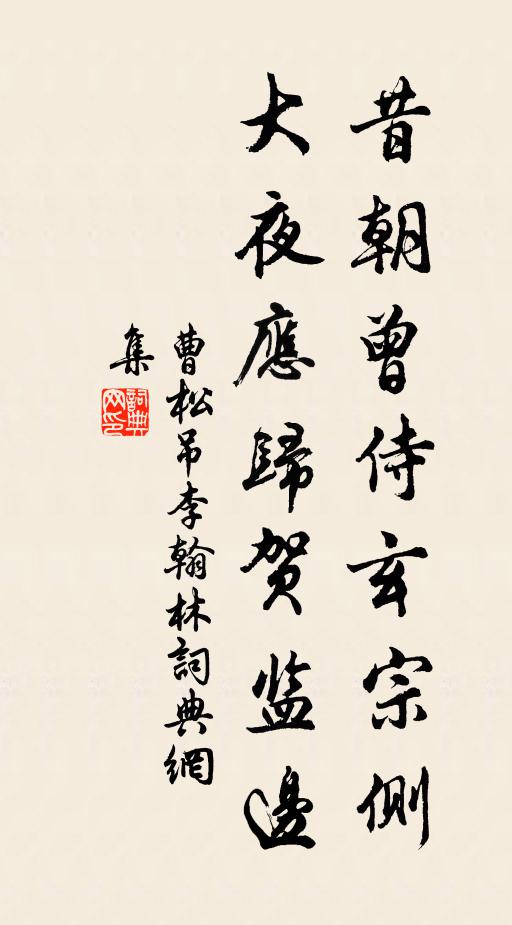 昔朝曾侍玄宗側
大夜應歸贺监邊
曹松吊李翰林詞典網
集
詞典
网印